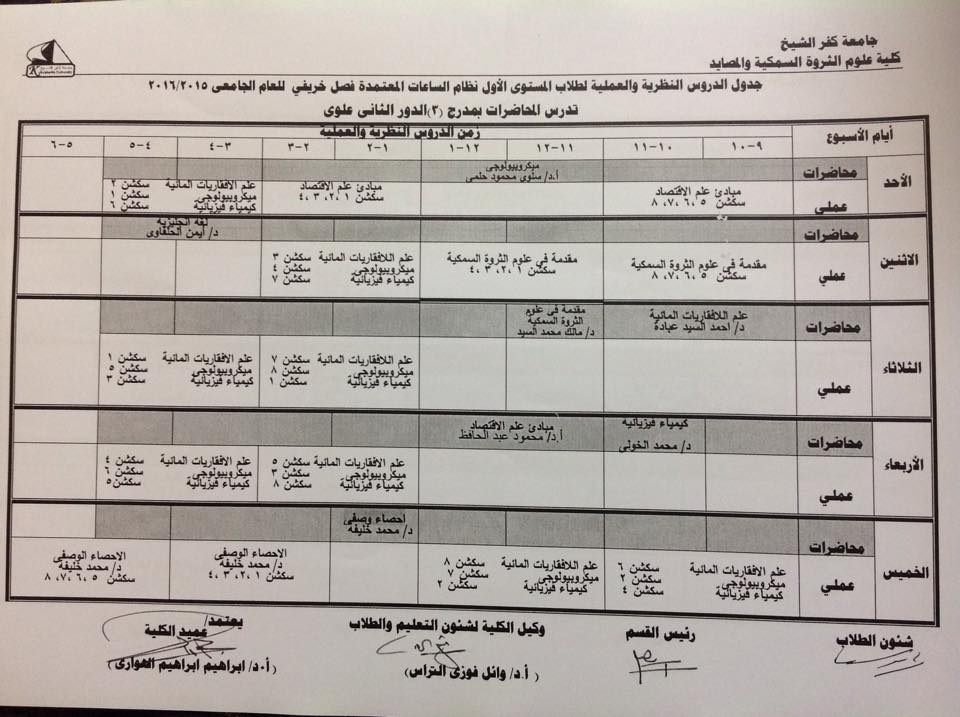 جامعة كفر الشيخ
كلية علوم الثروة السمكية والمصايد
جدول الدروس النظرية والعملية لطلاب المستوى الأول نظام الساعات المعتمدة فصل خريفي للعام الجامعى ٢٠١٦/٢٠١٥
تدرس المحاضرات بمدرج (٣) الدور الثانى علوى
أيام الأسبوع
زمن الدروس النظرية والعملية
٩-١٠ ١٠-١١ ١١-١٢ ١٢-١ ١-٢ ٢-٣ ٣-٤ ٤-٥ ٥-٦
الأحد
محاضرات
ميكروبيولوجى
أ.د/ سلوى محمود حلمى
عملى
مبادئ علم الاقتصاد
سكشن ٥، ٦، ٧، ٨
مبادئ علم الاقتصاد
سكشن ١، ٢، ٣، ٤
علم الافقاريات المائية سكشن ٢
ميكروبيولوجى سكشن ١
كيمياء فيزيائية سكشن ٦
الاثنين
محاضرات
لغة انجليزية
د/ أيمن الحلفاوى
عملي
مقدمة فى علوم الثروة السمكية
سكشن ٥، ٦، ٧، ٨
مقدمة فى علوم الثروة السمكية
سكشن ١، ٢، ٣، ٤
علم اللافقاريات المائية سكشن ٣
ميكروبيولوجى سكشن ٤
كيمياء فيزيائية سكشن ٧
الثلاثاء
محاضرات
علم اللافقاريات المائية
د/ احمد السيد عبادة
مقدمة فى علوم
الثروة السمكية
د/ مالك محمد السيد
عملي
علم اللافقاريات المائية سكشن ٧
ميكروبيولوجى سكشن ٨
كيمياء فيزيائية سكشن ١
علم الافقاريات المائية سكشن ١
ميكروبيولوجى سكشن ٥
كيمياء فيزيائية سكشن ٣
الأربعاء
محاضرات
كيمياء فيزيائية
د/ محمد الخولى
مبادئ علم الاقتصاد
أ.د/ محمود عبد الحافظ
عملي
علم الافقاريات المائية سكشن ٥
ميكروبيولوجى سكشن ٣
كيمياء فيزيائية سكشن ٨
علم الافقاريات المائية سكشن ٤
ميكروبيولوجى سكشن ٦
كيمياء فيزيائية سكشن ٥
الخميس
محاضرات
احصاء وصفى
د/ محمد خليفة
عملي
علم الافقاريات المائية سكشن ٦
ميكروبيولوجى سكشن ٢
كيمياء فيزيائية سكشن ٤
علم اللافقاريات المائية سكشن ٨
ميكروبيولوجى سكشن ٧
كيمياء فيزيائية سكشن ٢
الاحصاء الوصفى
د/ محمد خليفة
سكشن ١، ٢، ٣، ٤
الاحصاء الوصفى
د/ محمد خليفة
سكشن ٥، ٦، ٧، ٨
شئون الطلاب
رئيس القسم
وكيل الكلية لشئون التعليم والطلاب
(أ.د/ وائل فوزى التراس)
يعتمد/
عميد الكلية
(أ.د/ ابراهيم ابراهيم الهوارى)